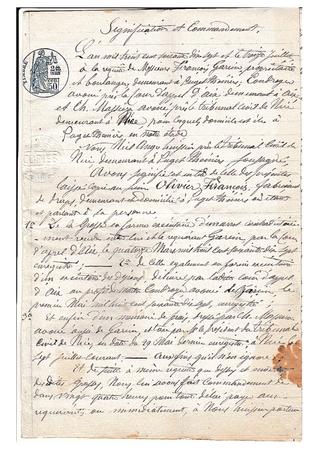 Signification et Commandement.
L'an mil huit cent soixante dix sept et le treize juillet
à la requête de Monsieur François Garcin, propriétaire
et boulanger, demeurant à Puget Théniers,
avoué près la Cour d'appel d'Aix demeurant à Aix
et Ch. Massiera avoué près le tribunal civil de Nice
demeurant à Nice pour lequel domicile est élu à
Puget Théniers, en notre étude
Nous huissier près le Tribunal Civil de
Nice demeurant à Puget Théniers soussigné.
Avons signifié et en tête de celle des présentes
laissé copie au sieur Olivier François,
de draps, demeurant et domicilié à Puget Théniers en étant
et parlant à sa personne
1° De la Grosse en forme exécutoire d'un arrêt
ment rendu entre lui et le requérant Garcin, par la Cour
d'appel d'Aix le quatorze Mars mil huit cent soixante dix sept
enregistré. 2° De celle également en forme exécutoire
d'un exécutoire de dépens, délivré par la Cour d'appel
d'Aix au profit de avoué de Garcin, le
premier Mai mil huit cent soixante dix sept enregistré
3° et enfin d'un de frais par Me Massiera
avoué aussi de Garcin et taxé par le président du Tribunal
Civil de Nice, en date du 29 Mai dernier enregistré à Nice le
sept juillet courant. Aux fins qu'il n'en ignore
Et de suite à même requête que dessus et en vertu
des dites Grosses, Nous lui avons fait Commandement de
dans vingt quatre heures pour tout délai payer au
requérant ou immédiatement, à Nous huissier porteur